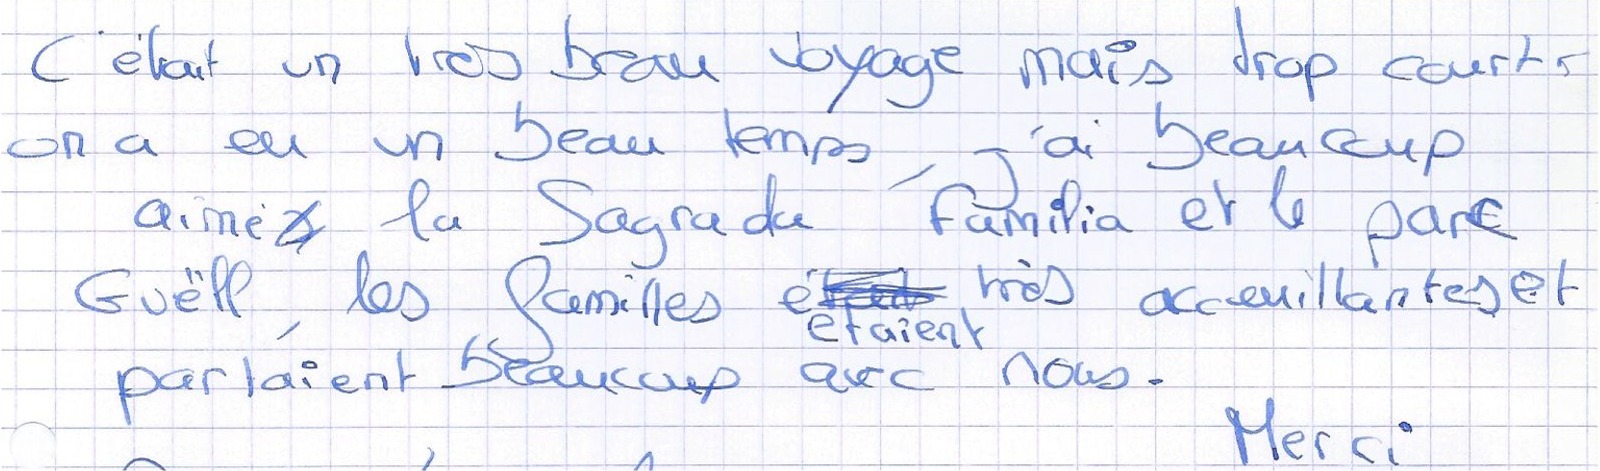 C'était un très beau voyage mais trop court,
on a eu un beau temps, j'ai beaucoup
aimé la Sagrada Familia et le parc
Guëll, les familles étaient très acceuillantes et
parlaient beaucoup avec nous.
Merci